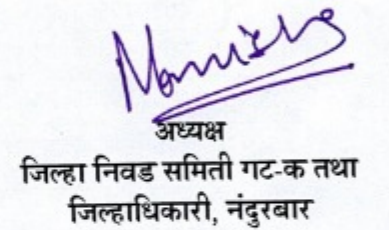 अध्यक्ष
जिल्हा निवड समिती गट-क तथा
जिल्हाधिकारी, नंदुरबार